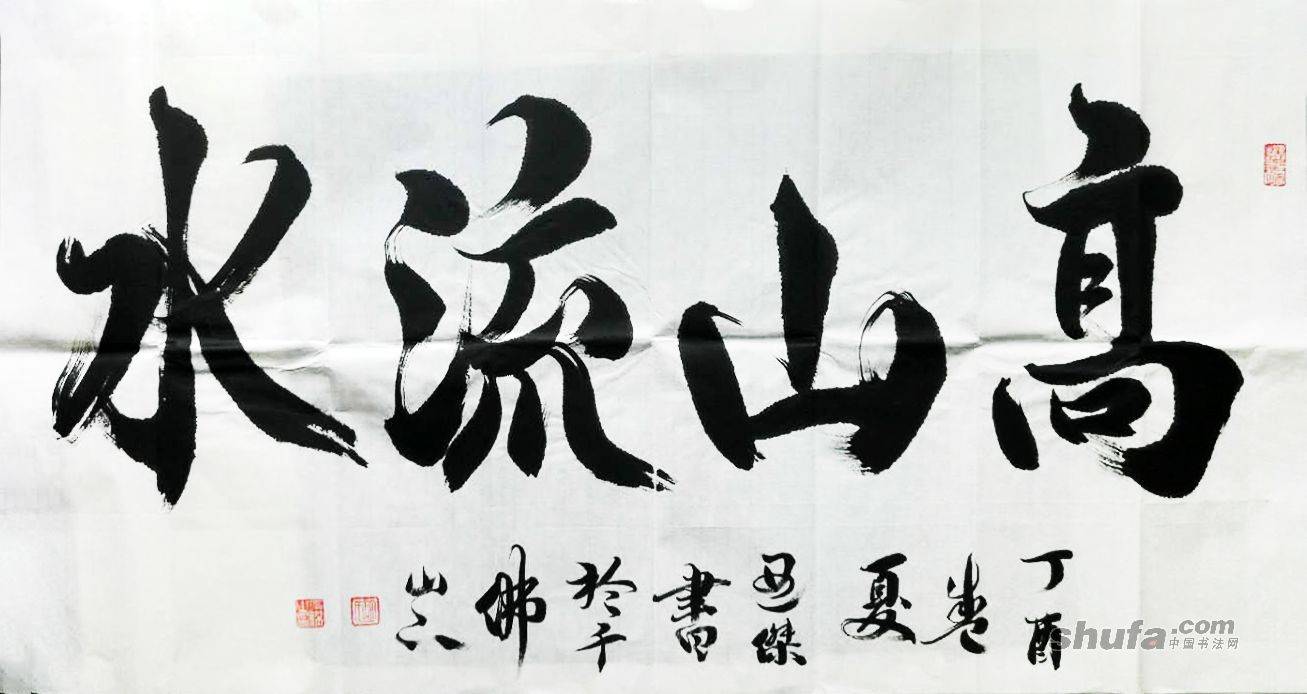 高山流水
丁酉盛夏思傑書於千佛山下
shufa.com
中国书法网